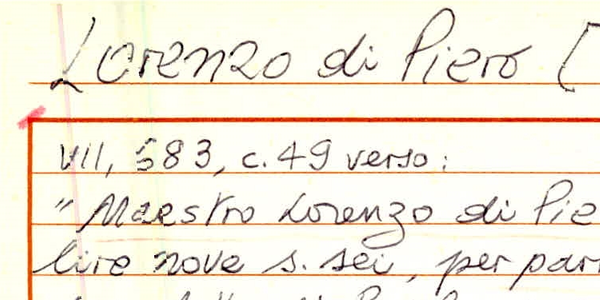 Lorenzo di Piero [
VII, 583, c. 49 verso:
"Maestro Lorenzo di Pie
lire nove s. sei, per par